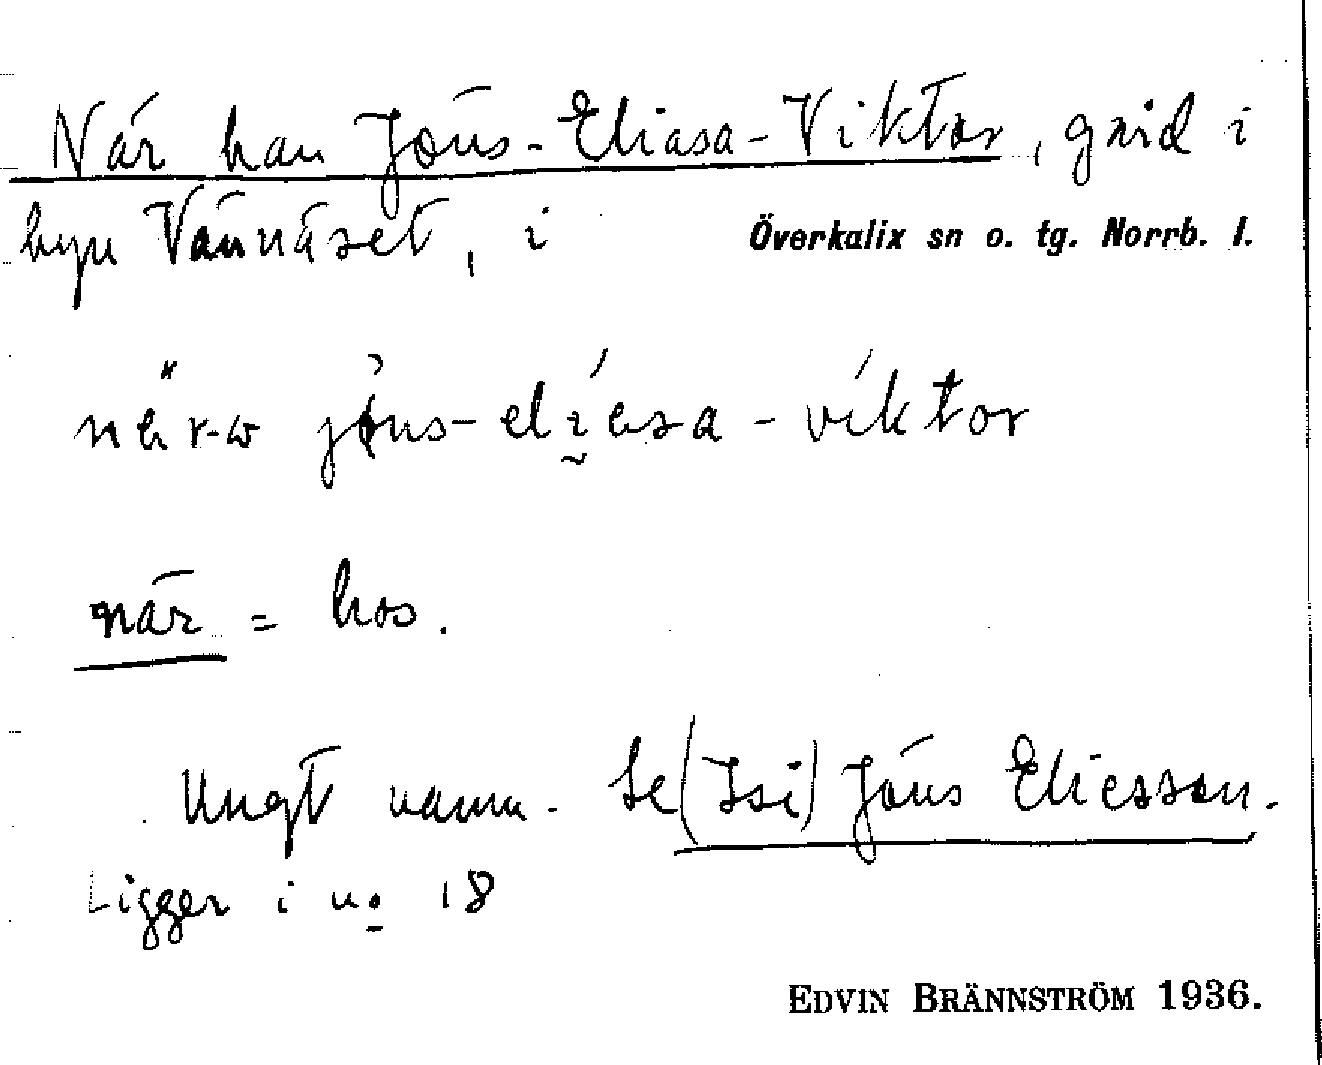 När han Jöns-Eliasa-Viktor, gård i
byn Vännäset, i Överkalix sn o. tg. Norrb. l.
jöns-eliesa-viktor
när = hos.
Ungt namn. Se (Isi) Jöns Eliesson.
Ligger i no 18
EDVIN BRÄNNSTRÖM 1936.